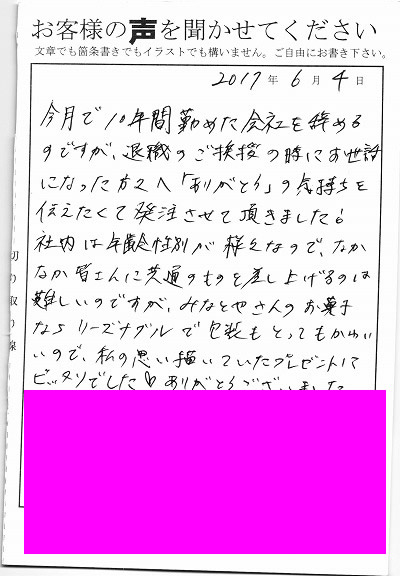 お客様の声を聞かせてください
文章でも箇条書きでもイラストでも構いません。ご自由にお書き下さい。
2017年 6月 4日
今月で10年間勤めた会社を辞める
のですが、退職のご挨拶の時にお世話
になった方々へ「ありがとう」の気持ちを
伝えたくて発注させて頂きました!
社内は年齢性別が様々なので、なか
なか皆さんに共通のものを差し上げるのは
難しいのですが、みなとやさんのお菓子
ならリーズナブルで包装もとってもかわい
いので、私の思い描いていたプレゼントに
ピッタリでした♡ありがとうございました
切り取り線